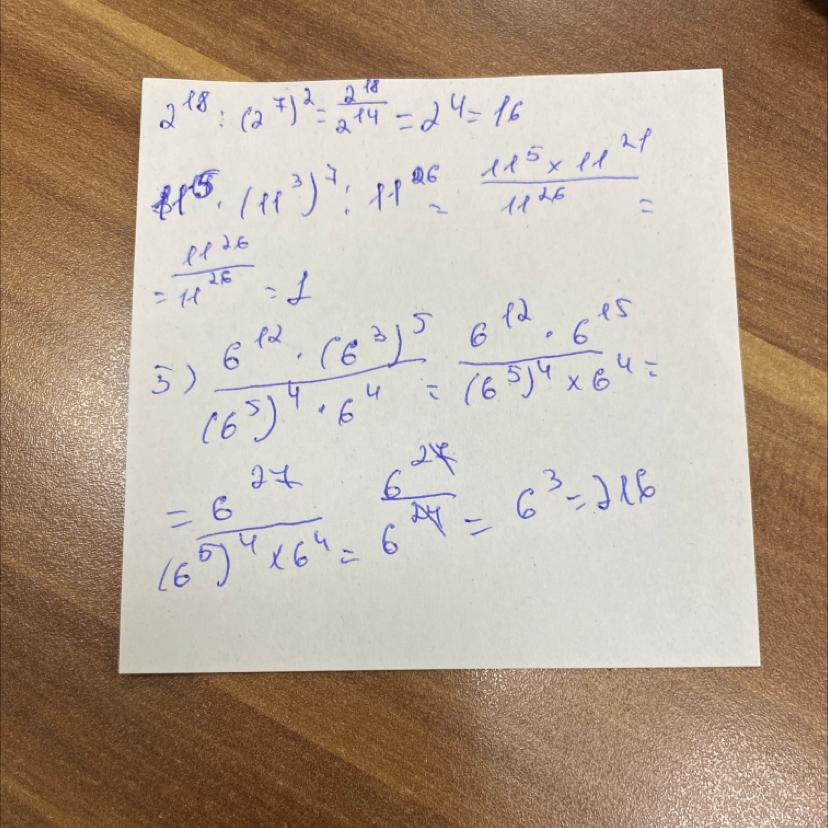 2^18 : (2^7)^2 = 2^18/2^14 = 2^4 = 16
11^5 · (11^3)^7 : 11^26 = (11^5 × 11^21)/11^26 =
= 11^26/11^26 = 1
5) (6^12 · (6^3)^5)/((6^5)^4 · 6^4) = (6^12 · 6^15)/((6^5)^4 × 6^4) =
= 6^27/((6^5)^4 × 6^4) = 6^27/6^24 = 6^3 = 216